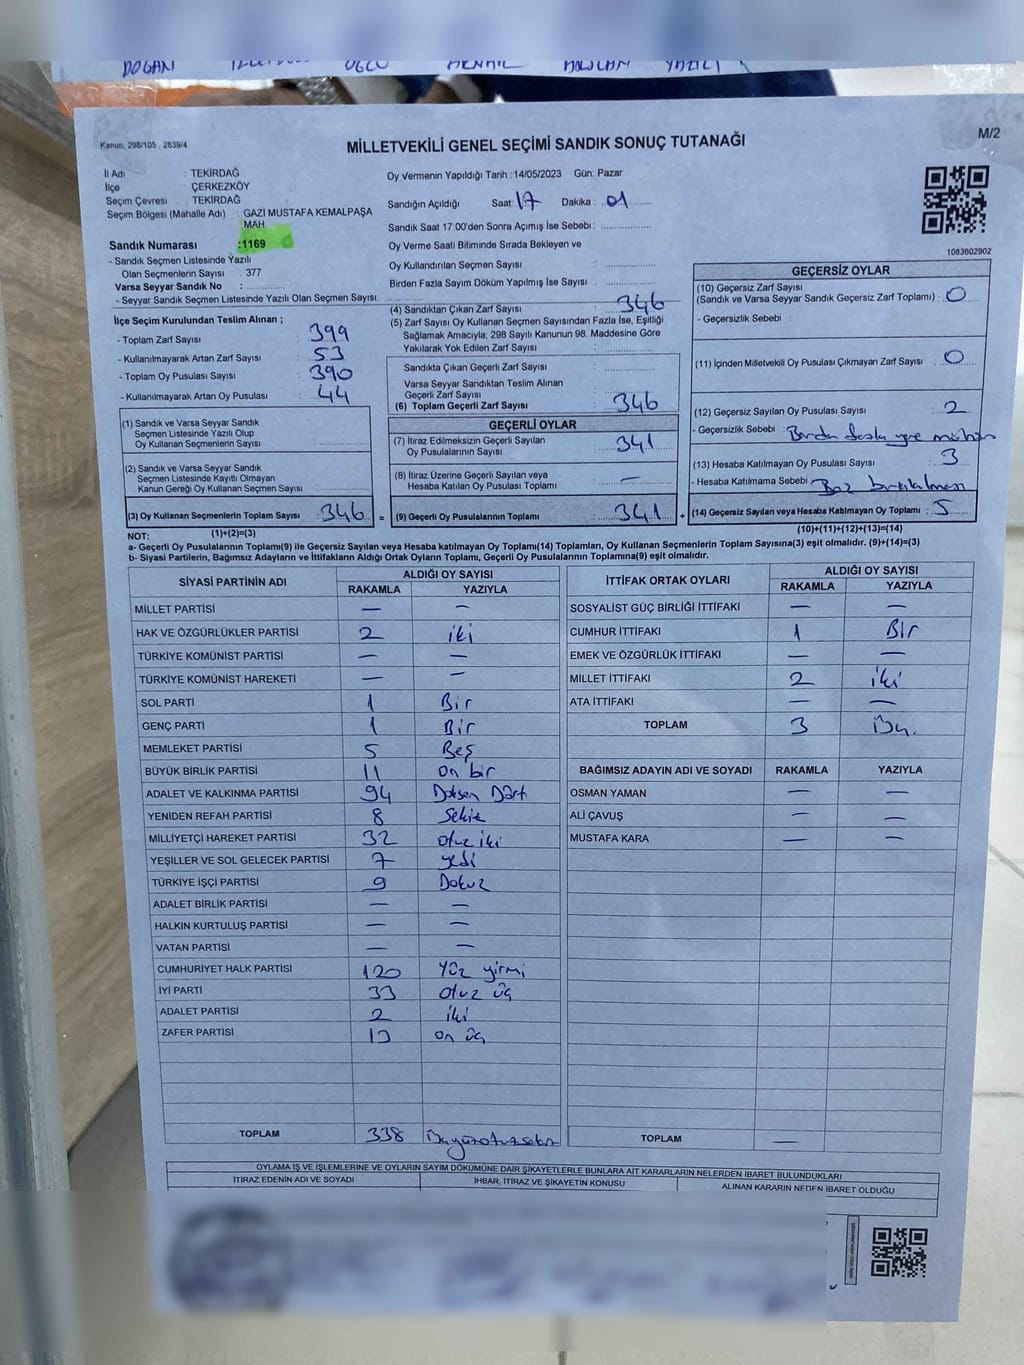 DOĞAN
YAZICI
Kanun, 298/105 , 2839/4
MİLLETVEKİLİ GENEL SEÇİMİ SANDIK SONUÇ TUTANAĞI
M/2
İl Adı : TEKİRDAĞ
İlçe : ÇERKEZKÖY
Seçim Çevresi : TEKİRDAĞ
Seçim Bölgesi (Mahalle Adı) : GAZİ MUSTAFA KEMALPAŞA MAH
Sandık Numarası :1169
- Sandık Seçmen Listesinde Yazılı
Olan Seçmenlerin Sayısı : 377
Varsa Seyyar Sandık No :
- Seyyar Sandık Seçmen Listesinde Yazılı Olan Seçmen Sayısı.
İlçe Seçim Kurulundan Teslim Alınan ;
- Toplam Zarf Sayısı : 399
- Kullanılmayarak Artan Zarf Sayısı : 53
- Toplam Oy Pusulası Sayısı : 390
- Kullanılmayarak Artan Oy Pusulası : 44
(1) Sandık ve Varsa Seyyar Sandık
Seçmen Listesinde Yazılı Olup
Oy Kullanan Seçmenlerin Sayısı :
(2) Sandık ve Varsa Seyyar Sandık
Seçmen Listesinde Kayıtlı Olmayan
Kanun Gereği Oy Kullanan Seçmen Sayısı :
(3) Oy Kullanan Seçmenlerin Toplam Sayısı : 346
(1)+(2)=(3)
Oy Vermenin Yapıldığı Tarih : 14/05/2023 Gün: Pazar
Sandığın Açıldığı Saat: 17 Dakika : 01
Sandık Saat 17:00'den Sonra Açımış İse Sebebi :
Oy Verme Saati Bitiminde Sırada Bekleyen ve
Oy Kullandırılan Seçmen Sayısı :
Birden Fazla Sayım Döküm Yapılmış İse Sayısı :
(4) Sandıktan Çıkan Zarf Sayısı : 346
(5) Zarf Sayısı Oy Kullanan Seçmen Sayısından Fazla İse, Eşitliği
Sağlamak Amacıyla; 298 Sayılı Kanunun 98. Maddesine Göre
Yakılarak Yok Edilen Zarf Sayısı :
Sandıkta Çıkan Geçerli Zarf Sayısı :
Varsa Seyyar Sandıktan Teslim Alınan
Geçerli Zarf Sayısı :
(6) Toplam Geçerli Zarf Sayısı : 346
GEÇERLİ OYLAR
(7) İtiraz Edilmeksizin Geçerli Sayılan
Oy Pusulalarının Sayısı : 341
(8) İtiraz Üzerine Geçerli Sayılan veya
Hesaba Katılan Oy Pusulası Toplamı : —
= (9) Geçerli Oy Pusulalarının Toplamı : 341 +
1083602902
GEÇERSİZ OYLAR
(10) Geçersiz Zarf Sayısı
(Sandık ve Varsa Seyyar Sandık Geçersiz Zarf Toplamı) : 0
- Geçersizlik Sebebi :
(11) İçinden Milletvekili Oy Pusulası Çıkmayan Zarf Sayısı : 0
(12) Geçersiz Sayılan Oy Pusulası Sayısı : 2
- Geçersizlik Sebebi : Birden fazla yere mühür
(13) Hesaba Katılmayan Oy Pusulası Sayısı : 3
- Hesaba Katılmama Sebebi : Boş bırakılması
(14) Geçersiz Sayılan veya Hesaba Katılmayan Oy Toplamı : 5
(10)+(11)+(12)+(13)=(14)
NOT:
a- Geçerli Oy Pusulalarının Toplamı(9) ile Geçersiz Sayılan veya Hesaba katılmayan Oy Toplamı(14) Toplamları, Oy Kullanan Seçmenlerin Toplam Sayısına(3) eşit olmalıdır. (9)+(14)=(3)
b- Siyasi Partilerin, Bağımsız Adayların ve İttifakların Aldığı Oyların Toplamı, Geçerli Oy Pusulalarının Toplamına(9) eşit olmalıdır.
SİYASİ PARTİNİN ADI ALDIĞI OY SAYISI
RAKAMLA YAZIYLA
MİLLET PARTİSİ — —
HAK VE ÖZGÜRLÜKLER PARTİSİ 2 iki
TÜRKİYE KOMÜNİST PARTİSİ — —
TÜRKİYE KOMÜNİST HAREKETİ — —
SOL PARTİ 1 Bir
GENÇ PARTİ 1 Bir
MEMLEKET PARTİSİ 5 Beş
BÜYÜK BİRLİK PARTİSİ 11 on bir
ADALET VE KALKINMA PARTİSİ 94 Doksan Dört
YENİDEN REFAH PARTİSİ 8 Sekiz
MİLLİYETÇİ HAREKET PARTİSİ 32 otuz iki
YEŞİLLER VE SOL GELECEK PARTİSİ 7 yedi
TÜRKİYE İŞÇİ PARTİSİ 9 Dokuz
ADALET BİRLİK PARTİSİ — —
HALKIN KURTULUŞ PARTİSİ — —
VATAN PARTİSİ — —
CUMHURİYET HALK PARTİSİ 120 Yüz yirmi
İYİ PARTİ 33 otuz üç
ADALET PARTİSİ 2 iki
ZAFER PARTİSİ 13 on üç
TOPLAM 338 Üçyüzotuzsekiz
İTTİFAK ORTAK OYLARI ALDIĞI OY SAYISI
RAKAMLA YAZIYLA
SOSYALİST GÜÇ BİRLİĞİ İTTİFAKI — —
CUMHUR İTTİFAKI 1 Bir
EMEK VE ÖZGÜRLÜK İTTİFAKI — —
MİLLET İTTİFAKI 2 iki
ATA İTTİFAKI — —
TOPLAM 3 Üç.
BAĞIMSIZ ADAYIN ADI VE SOYADI RAKAMLA YAZIYLA
OSMAN YAMAN — —
ALİ ÇAVUŞ — —
MUSTAFA KARA — —
TOPLAM —
OYLAMA İŞ VE İŞLEMLERİNE VE OYLARIN SAYIM DÖKÜMÜNE DAİR ŞİKAYETLERLE BUNLARA AİT KARARLARIN NELERDEN İBARET BULUNDUKLARI
İTİRAZ EDENİN ADI VE SOYADI İHBAR, İTİRAZ VE ŞİKAYETİN KONUSU ALINAN KARARIN NEDEN İBARET OLDUĞU